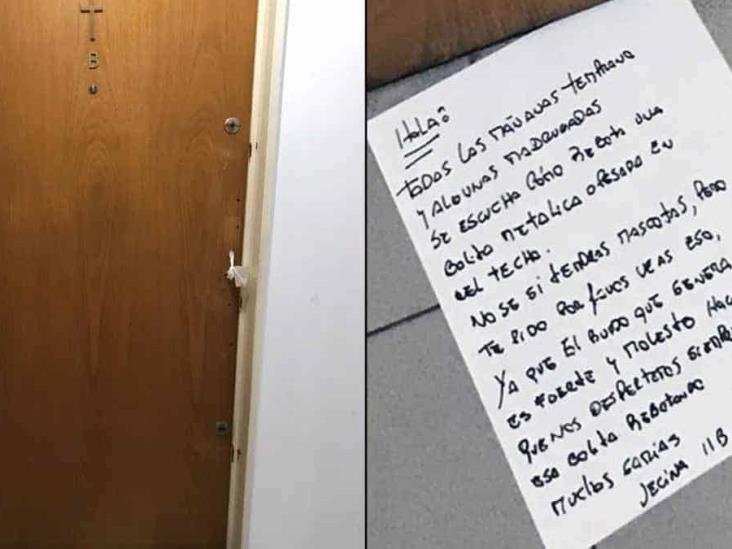 B
HOLA:
TODAS LAS MAÑANAS TEMPRANO
Y ALGUNAS MADRUGADAS
SE ESCUCHA CÓMO REBOTA UNA
BOLITA METALICA O PESADA EN
EL TECHO.
NO SE SI TENDRAS MASCOTAS, PERO
TE PIDO POR FAVOR VEAS ESO,
YA QUE EL RUIDO QUE GENERA
ES FUERTE Y MOLESTO HAC
QUE NOS DESPERTEMOS SIEMPR
ESA BOLITA REBOTANDO
MUCHAS GRACIAS
VECINA 11B